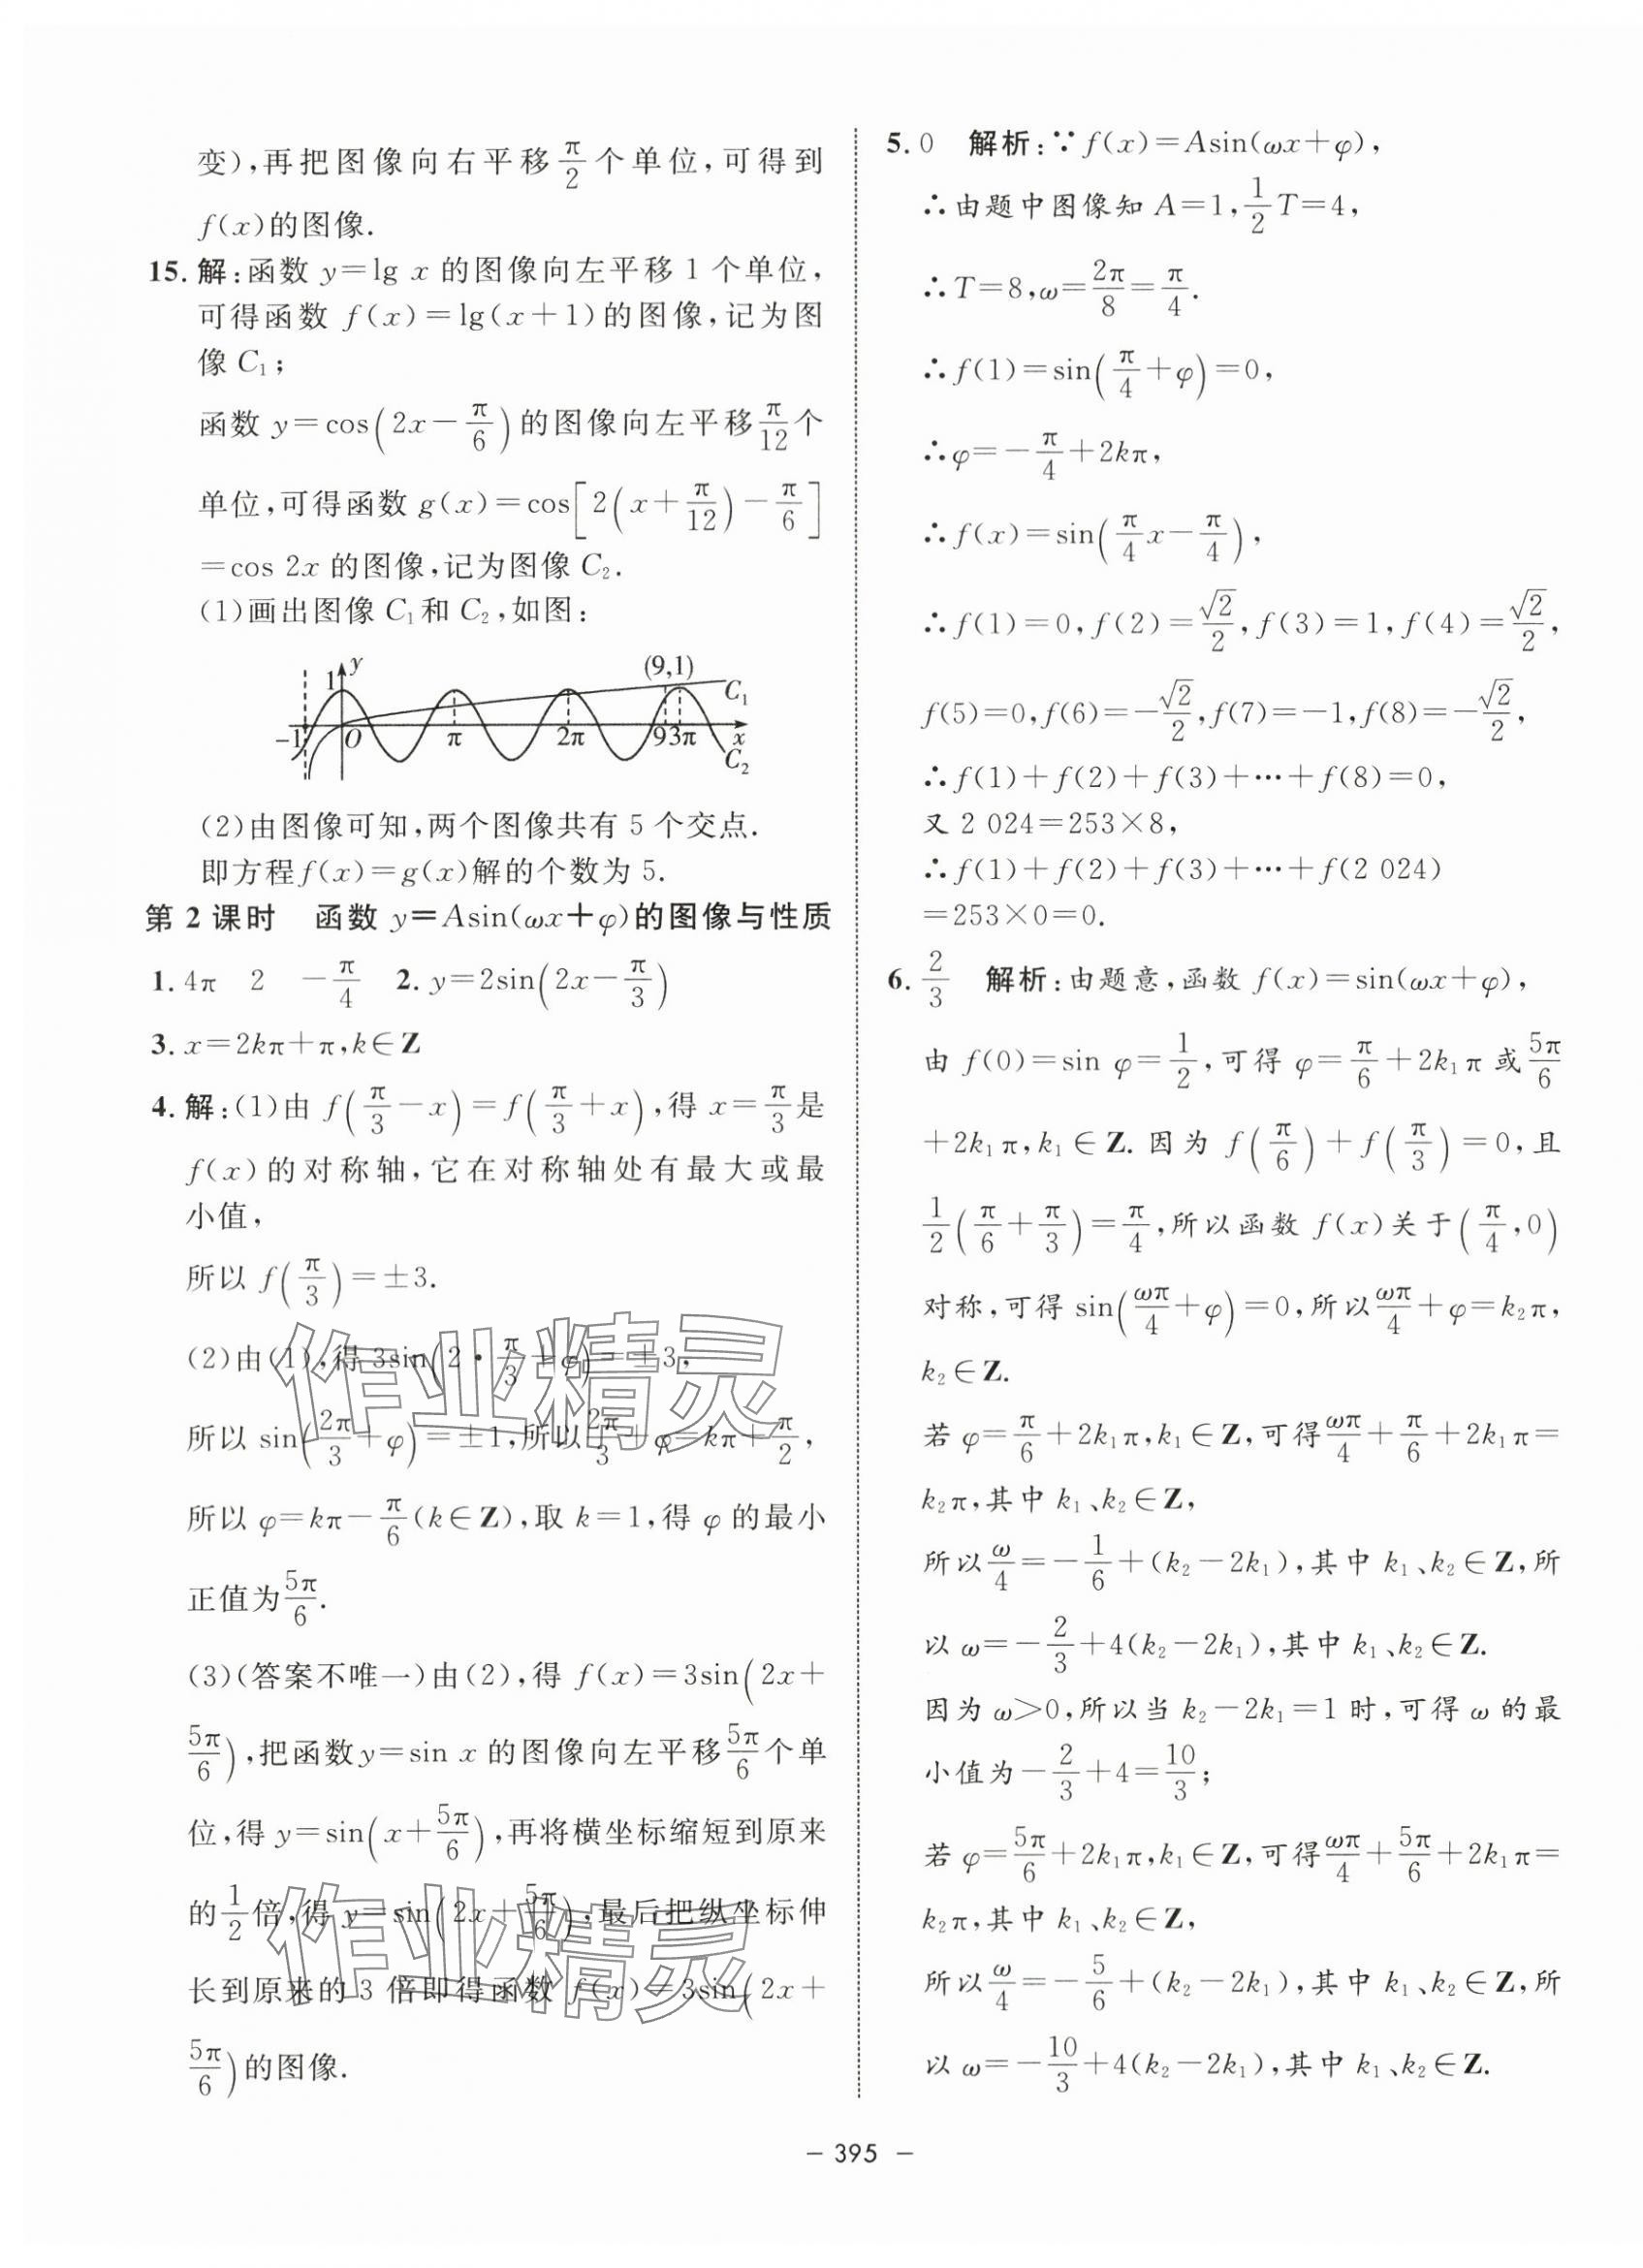 变),再把图像向右平移π/2个单位,可得到
f(x)的图像.
15. 解:函数 y=lg x 的图像向左平移 1 个单位,
可得函数 f(x)=lg(x+1)的图像,记为图
像 C₁;
函数 y=cos(2x-π/6)的图像向左平移π/12个
单位,可得函数 g(x)=cos[2(x+π/12)-π/6]
=cos 2x 的图像,记为图像 C₂.
(1)画出图像 C₁和 C₂,如图:
y
1
(9,1)
C₁
-1 O π 2π 9 3π x
C₂
(2)由图像可知,两个图像共有 5 个交点.
即方程f(x)=g(x)解的个数为 5.
第 2 课时 函数 y=Asin(ωx+φ)的图像与性质
1. 4π 2 -π/4 2. y=2sin(2x-π/3)
3. x=2kπ+π,k∈Z
4. 解:(1)由 f(π/3-x)=f(π/3+x),得 x=π/3是
f(x)的对称轴,它在对称轴处有最大或最
小值,
所以 f(π/3)=±3.
(2)由(1),得 3sin(2·π/3+φ)=±3,
所以 sin(2π/3+φ)=±1,所以2π/3+φ=kπ+π/2,
所以 φ=kπ-π/6(k∈Z),取 k=1,得 φ 的最小
正值为5π/6.
(3)(答案不唯一)由(2),得 f(x)=3sin(2x+
5π/6),把函数y=sin x 的图像向左平移5π/6个单
位,得 y=sin(x+5π/6),再将横坐标缩短到原来
的1/2倍,得 y=sin(2x+5π/6),最后把纵坐标伸
长到原来的 3 倍即得函数 f(x)=3sin(2x+
5π/6)的图像.
5. 0 解析:∵f(x)=Asin(ωx+φ),
∴由题中图像知 A=1,1/2T=4,
∴T=8,ω=2π/8=π/4.
∴f(1)=sin(π/4+φ)=0,
∴φ=-π/4+2kπ,
∴f(x)=sin(π/4x-π/4),
∴f(1)=0,f(2)=√2/2,f(3)=1,f(4)=√2/2,
f(5)=0,f(6)=-√2/2,f(7)=-1,f(8)=-√2/2,
∴f(1)+f(2)+f(3)+⋯+f(8)=0,
又 2 024=253×8,
∴f(1)+f(2)+f(3)+⋯+f(2 024)
=253×0=0.
6. 2/3 解析:由题意,函数 f(x)=sin(ωx+φ),
由 f(0)=sin φ=1/2,可得 φ=π/6+2k₁π 或5π/6
+2k₁π,k₁∈Z.因为 f(π/6)+f(π/3)=0,且
1/2(π/6+π/3)=π/4,所以函数 f(x)关于(π/4,0)
对称,可得 sin(ωπ/4+φ)=0,所以ωπ/4+φ=k₂π,
k₂∈Z.
若 φ=π/6+2k₁π,k₁∈Z,可得ωπ/4+π/6+2k₁π=
k₂π,其中 k₁、k₂∈Z,
所以ω/4=-1/6+(k₂-2k₁),其中 k₁、k₂∈Z,所
以 ω=-2/3+4(k₂-2k₁),其中 k₁、k₂∈Z.
因为 ω>0,所以当 k₂-2k₁=1 时,可得 ω 的最
小值为-2/3+4=10/3;
若 φ=5π/6+2k₁π,k₁∈Z,可得ωπ/4+5π/6+2k₁π=
k₂π,其中 k₁、k₂∈Z,
所以ω/4=-5/6+(k₂-2k₁),其中 k₁、k₂∈Z,所
以 ω=-10/3+4(k₂-2k₁),其中 k₁、k₂∈Z.
作业精灵
作业精灵
- 395 -